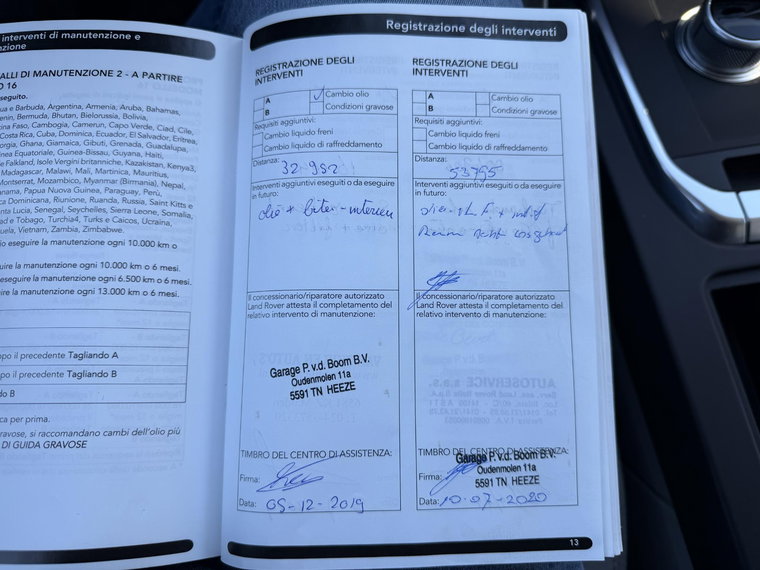 interventi di manutenzione e
nzione
ALLI DI MANUTENZIONE 2 - A PARTIRE
O 16
eseguito.
ua e Barbuda, Argentina, Armenia, Aruba, Bahamas,
enin, Bermuda, Bhutan, Bielorussia, Bolivia,
ina Faso, Cambogia, Camerun, Capo Verde, Ciad, Cile,
Costa Rica, Cuba, Dominica, Ecuador, El Salvador, Eritrea,
orgia, Ghana, Giamaica, Gibuti, Grenada, Guadalupa,
inea Equatoriale, Guinea-Bissau, Guyana, Haiti,
e Falkland, Isole Vergini britanniche, Kazakistan, Kenya3,
Madagascar, Malawi, Mali, Martinica, Mauritius,
Montserrat, Mozambico, Myanmar (Birmania), Nepal,
anama, Papua Nuova Guinea, Paraguay, Perù,
ca Dominicana, Riunione, Ruanda, Russia, Saint Kitts e
anta Lucia, Senegal, Seychelles, Sierra Leone, Somalia,
ad e Tobago, Turchia4, Turks e Caicos, Ucraina,
uela, Vietnam, Zambia, Zimbabwe.
io eseguire la manutenzione ogni 10.000 km o
uire la manutenzione ogni 10.000 km o 6 mesi.
eseguire la manutenzione ogni 6.500 km o 6 mesi.
ire la manutenzione ogni 13.000 km o 6 mesi.
opo il precedente Tagliando A
opo il precedente Tagliando B
do B
ca per prima.
gravose, si raccomandano cambi dell'olio più
DI GUIDA GRAVOSE
Registrazione degli interventi
REGISTRAZIONE DEGLI
INTERVENTI
A Cambio olio
B Condizioni gravose
Requisiti aggiuntivi:
Cambio liquido freni
Cambio liquido di raffreddamento
Distanza:
32-982
Interventi aggiuntivi eseguiti o da eseguire
in futuro:
olie +
Il concessionario/riparatore autorizzato
Land Rover attesta il completamento del
relativo intervento di manutenzione:
Garage P. v.d. Boom B.V.
Oudenmolen 11a
5591 TN HEEZE
TIMBRO DEL CENTRO DI ASSISTENZA:
Firma:
Data: 05-12-2019
REGISTRAZIONE DEGLI
INTERVENTI
A Cambio olio
B Condizioni gravose
Requisiti aggiuntivi:
Cambio liquido freni
Cambio liquido di raffreddamento
Distanza:
53795
Interventi aggiuntivi eseguiti o da eseguire
in futuro:
Il concessionario/riparatore autorizzato
Land Rover attesta il completamento del
relativo intervento di manutenzione:
TIMBRO DEL CENTRO DI ASSISTENZA:
Garage P. v.d. Boom B.V.
Oudenmolen 11a
5591 TN HEEZE
Firma:
Data: 10-07-2020
13